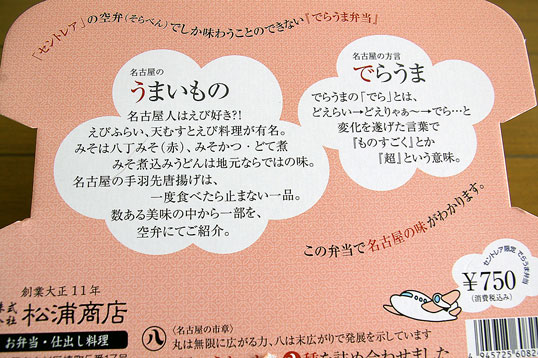 『セントレア』の空弁(そらべん)でしか味わうことのできない『でらうま弁当』
名古屋の
うまいもの
名古屋人はえび好き?!
えびふらい、天むすとえび料理が有名。
みそは八丁みそ(赤)、みそかつ・どて煮
みそ煮込みうどんは地元ならではの味。
名古屋の手羽先唐揚げは、
一度食べたら止まない一品。
数ある美味の中から一部を、
空弁にてご紹介。
名古屋の方言
でらうま
でらうまの「でら」とは、
どえらい→どえりゃぁ〜→でら…と
変化を遂げた言葉で
『ものすごく』とか
『超』という意味。
この弁当で名古屋の味がわかります。
セントレア限定 でらうま弁当
¥750
(消費税込み)
創業大正11年
株式会社 松浦商店
お弁当・仕出し料理
八
〈名古屋の市章〉
丸は無限に広がる力、八は末広がりで発展を示しています
を詰め合わせました
4 945725 6082